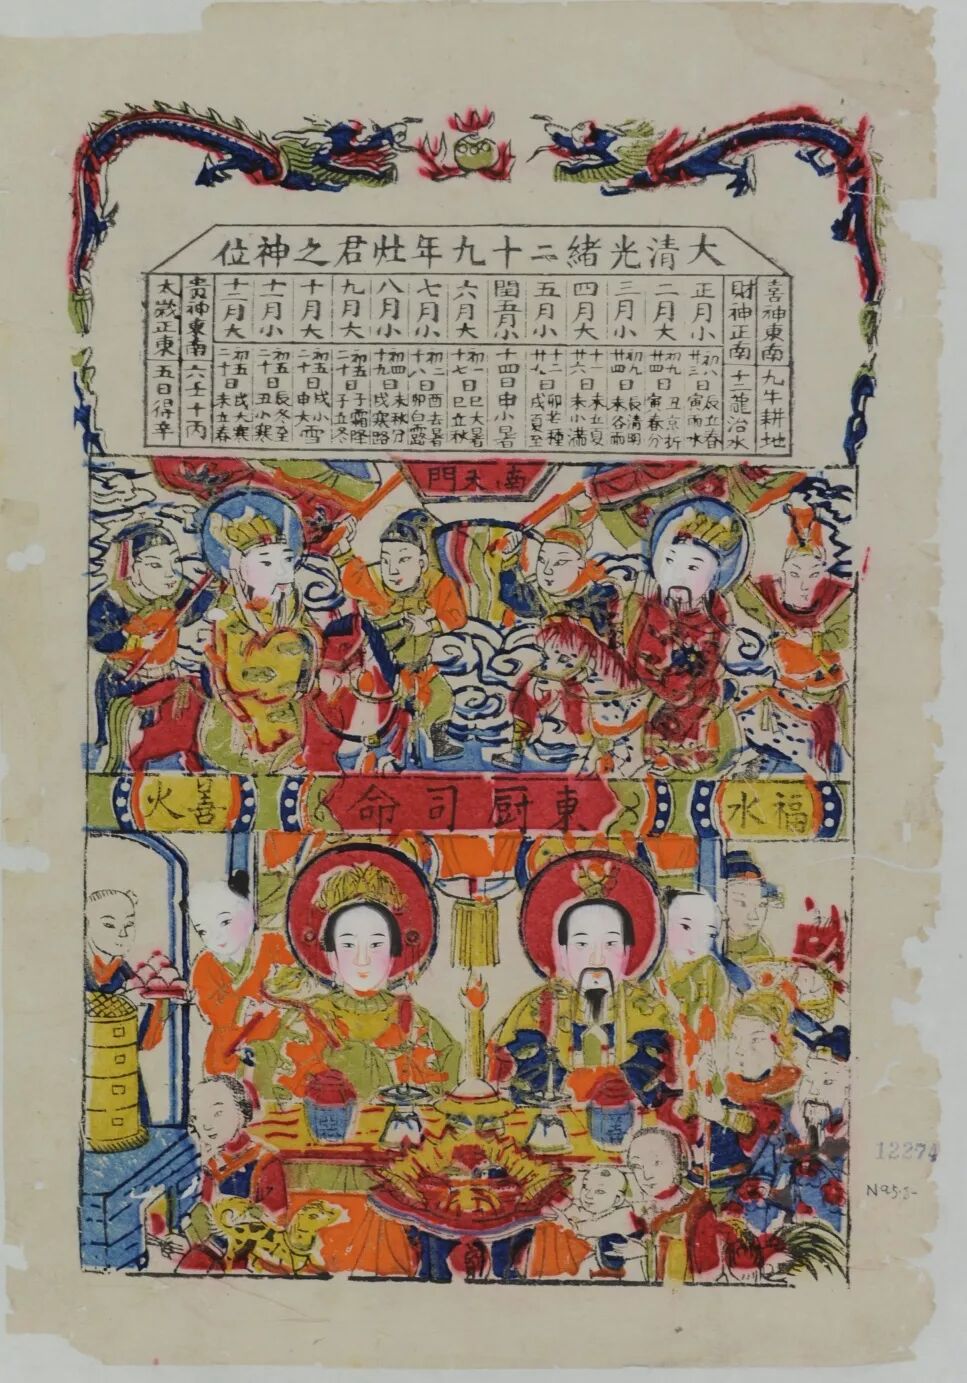 大清光緒二十九年灶君之神位
喜神東南 九牛耕地
財神正南 十二龍治水
正月小 初八日辰立春 廿三日寅雨水
二月大 初九日丑京折 廿四日寅春分
三月小 初九日辰清明 廿四日未谷雨
四月大 十一日未立夏 廿六日未小滿
五月小 十二日卯芒種 廿九日戌夏至
閏五月小 十四日申小暑
六月大 初一日巳大暑 十七日巳立秋
七月小 初二日酉去暑 十八日卯白露
八月小 初四日未秋分 十九日戌寒路
九月大 初五日子霜降 二十日子立冬
十月大 初五日戌小雪 二十日申大雪
十一月小 初五日辰冬至 二十日丑小寒
十二月大 初五日戌大寒 二十日未立春
貴神東南 六壬十丙
太歲正東 五日得辛
南天門
福水
東厨司命
善火
12274
N95.5-